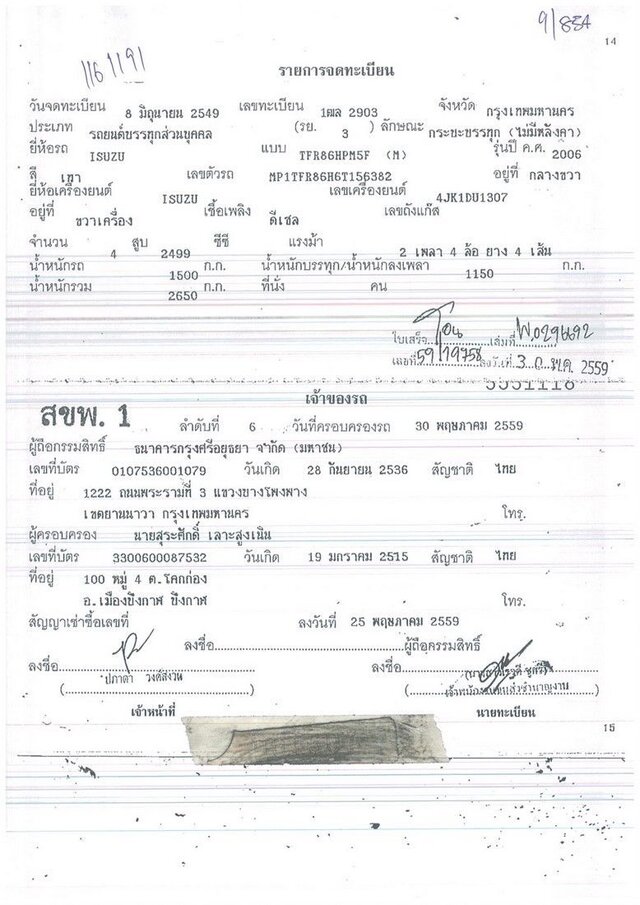 9/884
14
1161191
รายการจดทะเบียน
วันจดทะเบียน 8 มิถุนายน 2549 เลขทะเบียน 1ฒล 2903 จังหวัด กรุงเทพมหานคร
ประเภท รถยนต์บรรทุกส่วนบุคคล (รย. 3 ) ลักษณะ กระบะบรรทุก (ไม่มีหลังคา)
ยี่ห้อรถ ISUZU แบบ TFR86HPM5F (M) รุ่นปี ค.ศ. 2006
สี เทา เลขตัวรถ MP1TFR86H6T156382 อยู่ที่ กลางขวา
ยี่ห้อเครื่องยนต์ ISUZU เลขเครื่องยนต์ 4JK1DU1307
อยู่ที่ ขวาเครื่อง เชื้อเพลิง ดีเซล เลขถังแก๊ส
จำนวน 4 สูบ 2499 ซีซี แรงม้า 2 เพลา 4 ล้อ ยาง 4 เส้น
น้ำหนักรถ 1500 ก.ก. น้ำหนักบรรทุก/น้ำหนักลงเพลา 1150 ก.ก.
น้ำหนักรวม 2650 ก.ก. ที่นั่ง คน
ใบเสร็จ เล่มที่
เลขที่ 59/19758 ลงวันที่ 30 พ.ค. 2559
5551118
เจ้าของรถ
สขพ. 1
ลำดับที่ 6 วันที่ครอบครองรถ 30 พฤษภาคม 2559
ผู้ถือกรรมสิทธิ์ ธนาคารกรุงศรีอยุธยา จำกัด (มหาชน)
เลขที่บัตร 0107536001079 วันเกิด 28 กันยายน 2536 สัญชาติ ไทย
ที่อยู่ 1222 ถนนพระรามที่ 3 แขวงบางโพงพาง
เขตยานนาวา กรุงเทพมหานคร โทร.
ผู้ครอบครอง นายสุระศักดิ์ เลาะสูงเนิน
เลขที่บัตร 3300600087532 วันเกิด 19 มกราคม 2515 สัญชาติ ไทย
ที่อยู่ 100 หมู่ 4 ต.โคกก่อง
อ.เมืองบึงกาฬ บึงกาฬ โทร.
สัญญาเช่าซื้อเลขที่ ลงวันที่ 25 พฤษภาคม 2559
ลงชื่อ ผู้ถือกรรมสิทธิ์
ลงชื่อ ลงชื่อ
ปภาดา วงค์สังวน
เจ้าพนักงานขนส่งชำนาญงาน
เจ้าหน้าที่ นายทะเบียน
15